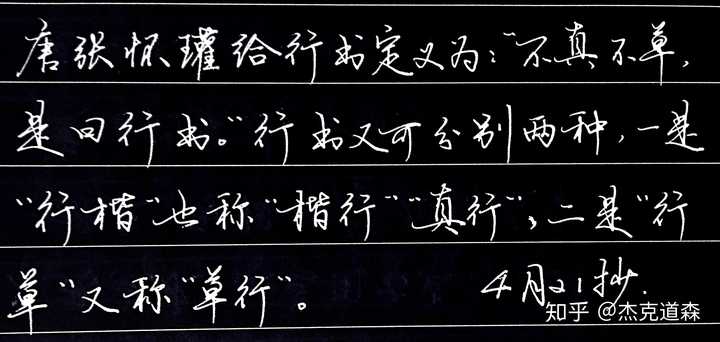 唐张怀瓘给行书定义为："不真不草，
是曰行书。"行书又可分别两种，一是
"行楷"也称"楷行""真行"，二是"行
草"又称"草行"。
4月21抄.
知乎 @杰克道森